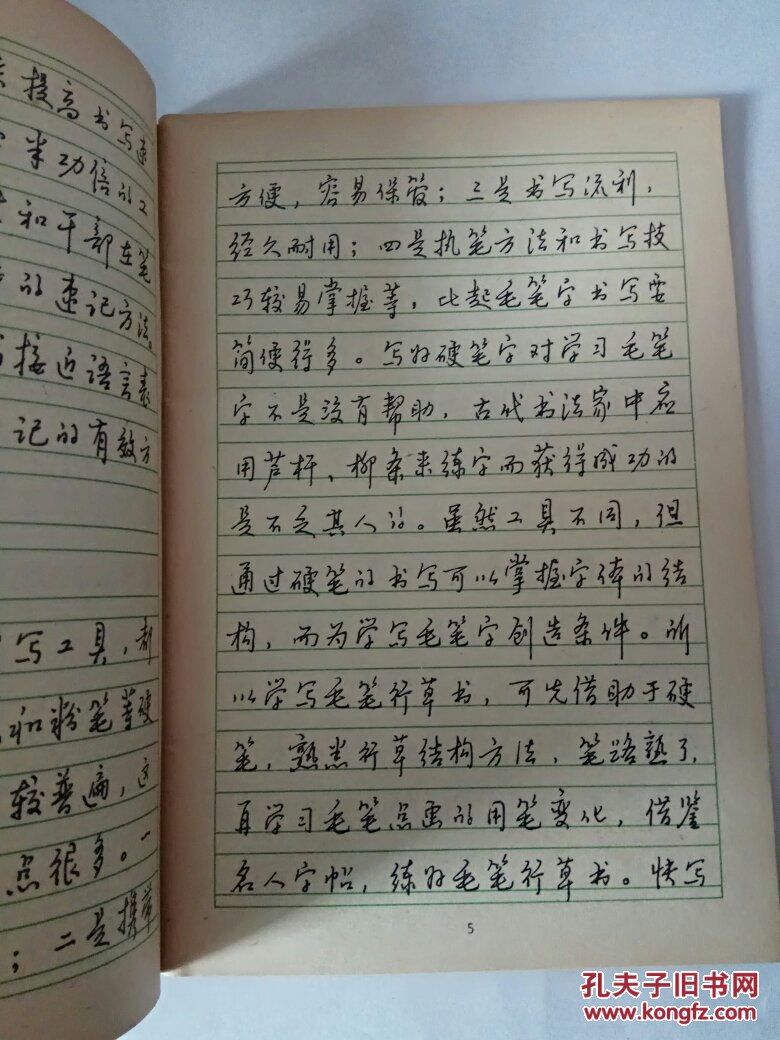 提高书写速
半功倍的工
和干部在笔
的速记方法。
接近语言表
记的有效方
写工具，都
和粉笔等硬
较普遍，这
点很多。一
；二是携带
方便，容易保管；三是书写流利，
经久耐用；四是执笔方法和书写技
巧较易掌握等，比起毛笔字书写要
简便得多。写好硬笔字对学习毛笔
字不是没有帮助，古代书法家中应
用芦杆、柳条来练字而获得成功的
是不乏其人的。虽然工具不同，但
通过硬笔的书写可以掌握字体的结
构，而为学写毛笔字创造条件。所
以学写毛笔行草书，可先借助于硬
笔，熟悉行草结构方法，笔路熟了，
再学习毛笔点画的用笔变化，借鉴
名人字帖，练好毛笔行草书。快写
5
孔夫子旧书网
www.kongfz.com